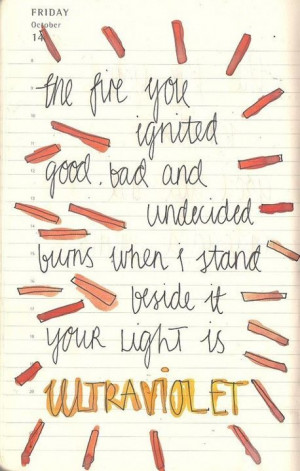 FRIDAY
October
14
the fire you
ignited
good, bad and
undecided
burns when i stand
beside it
your light is
ULTRAVIOLET